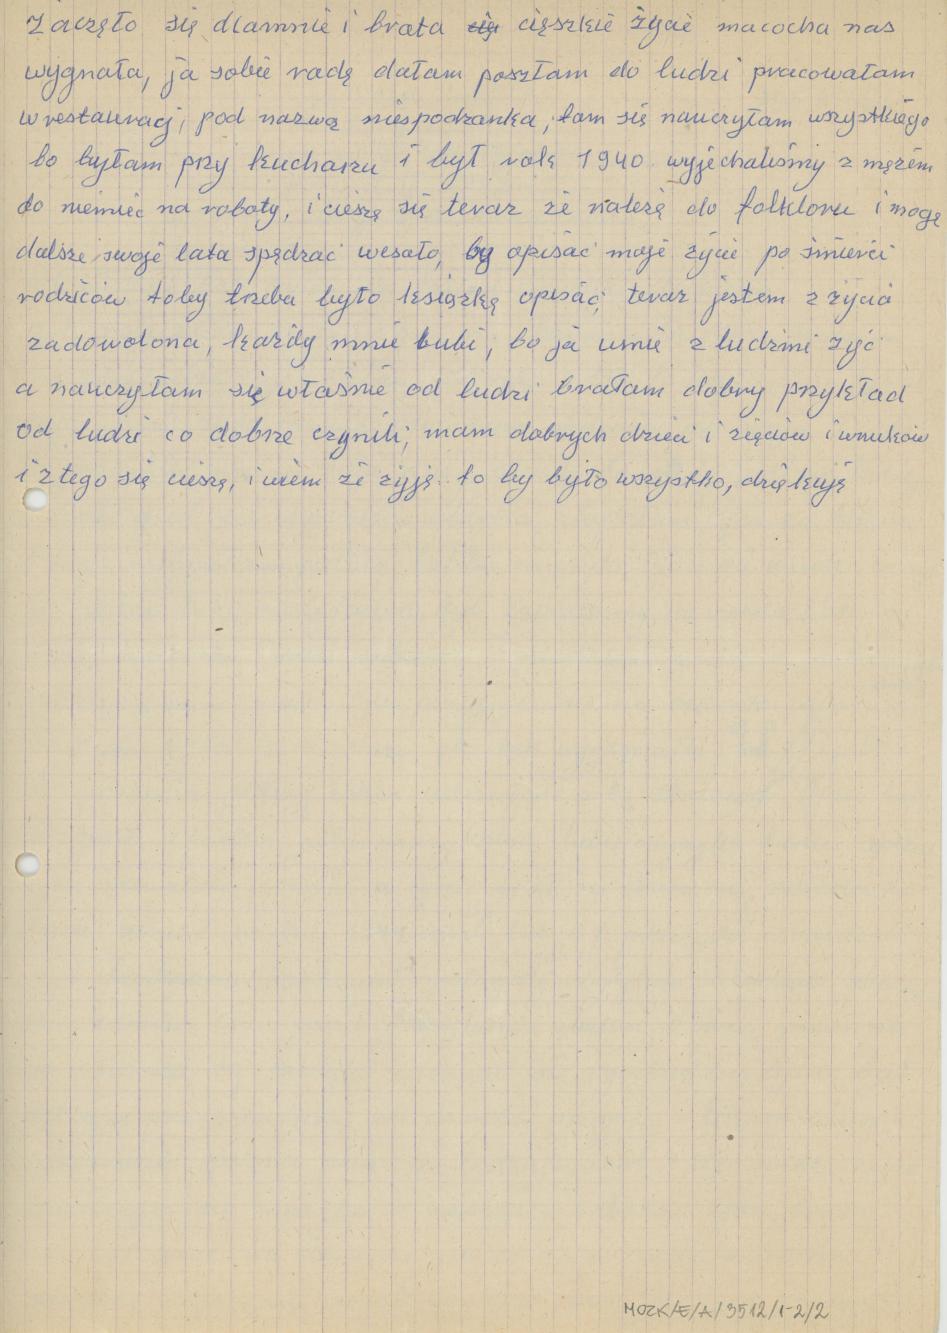 Zaczęło się dlamnie i brata się cięszkie życie macocha nas
wygnała, ja sobie radę dałam poszłam do ludzi pracowałam
w restauracj, pod nazwą niespodzanka, tam się nauczyłam wszystkiego
bo byłam przy kucharzu i był rok 1940 wyjechaliśmy z mężem
do niemiec na roboty, i cieszę się teraz że należę do folkloru i mogę
dalsze swoje lata spędzać wesoło, by opisać moje życie po śmierci
rodziców toby trzeba było książkę opisać, teraz jestem z życia
zadowolona, każdy mnie lubi, bo ja umie z ludzmi żyć
a nauczyłam się właśnie od ludzi brałam dobry przykład
od ludzi co dobrze czynili, mam dobrych dzieci i zięciów i wnuków
i z tego się cieszę, i wiem że żyję to by było wszystko, dziękuję
MOZK/E/A/3512/1-2/2